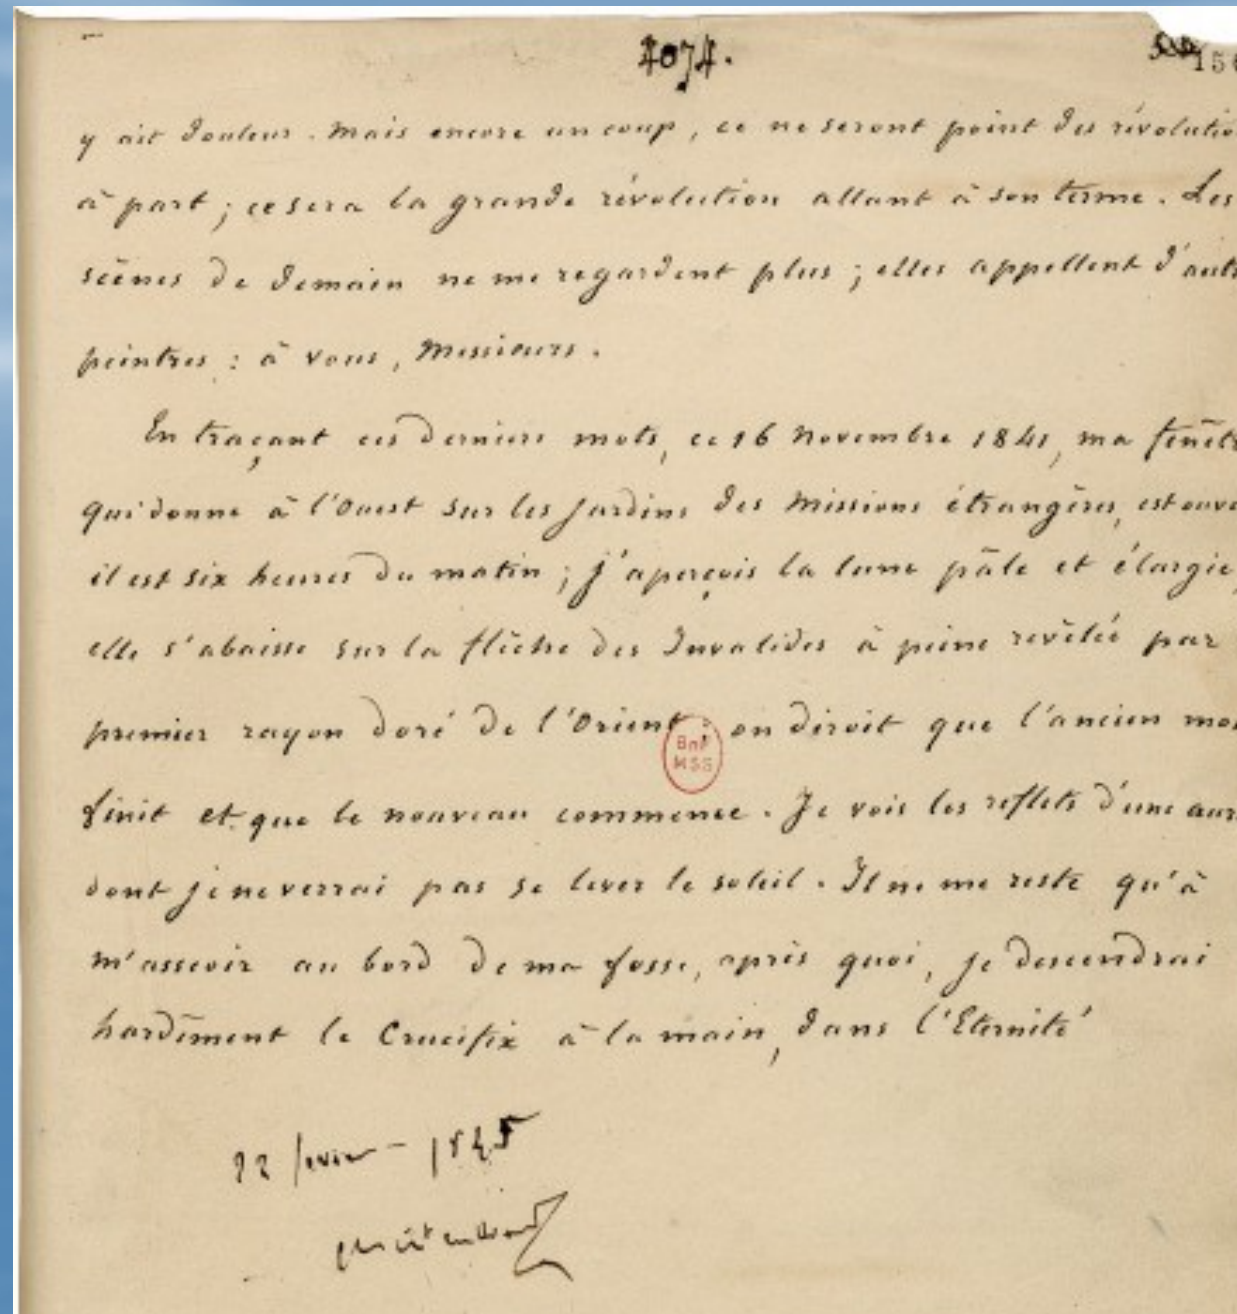 4074.
156
y ait douleur. Mais encore un coup, ce ne seront point des révolutio
à part ; ce sera la grande révolution allant à son terme. Les
scènes de demain ne me regardent plus ; elles appellent d'autr
peintres : à vous, Messieurs.
En traçant ces derniers mots, ce 16 Novembre 1841, ma fenêtr
qui donne à l'Ouest sur les jardins des Missions étrangères, est ouve
il est six heures du matin ; j'aperçois la lune pâle et élargie,
elle s'abaisse sur la flèche des Invalides à peine révélée par
premier rayon doré de l'Orient : on diroit que l'ancien mon
finit et que le nouveau commence. Je vois les reflets d'une auro
dont je ne verrai pas se lever le soleil. Il ne me reste qu'à
m'asseoir au bord de ma fosse, après quoi, je descendrai
hardiment le Crucifix à la main, dans l'Eternité
BnF
MSS
22 fevrier - 1845
Chateaubriand